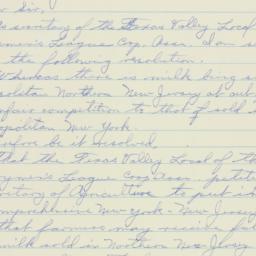 Sir,
secretary of the Texas Valley Local
League Coop. Assn. I am s
the following resolution.
Whereas there is milk being s
Northern New Jersey at out
unfair competition to that if sold
New York.
be it resolved,
that the Texas Valley Local of th
League Coop. Assn. petiti
of Agriculture to put i
comprehensive New York - New Jersey
that farmers may receive
milk sold in Northern New Jersey